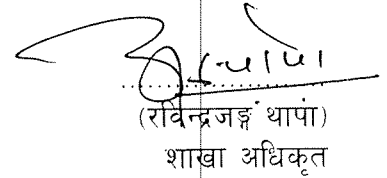 (रविन्द्रजङ्ग थापा)
शाखा अधिकृत